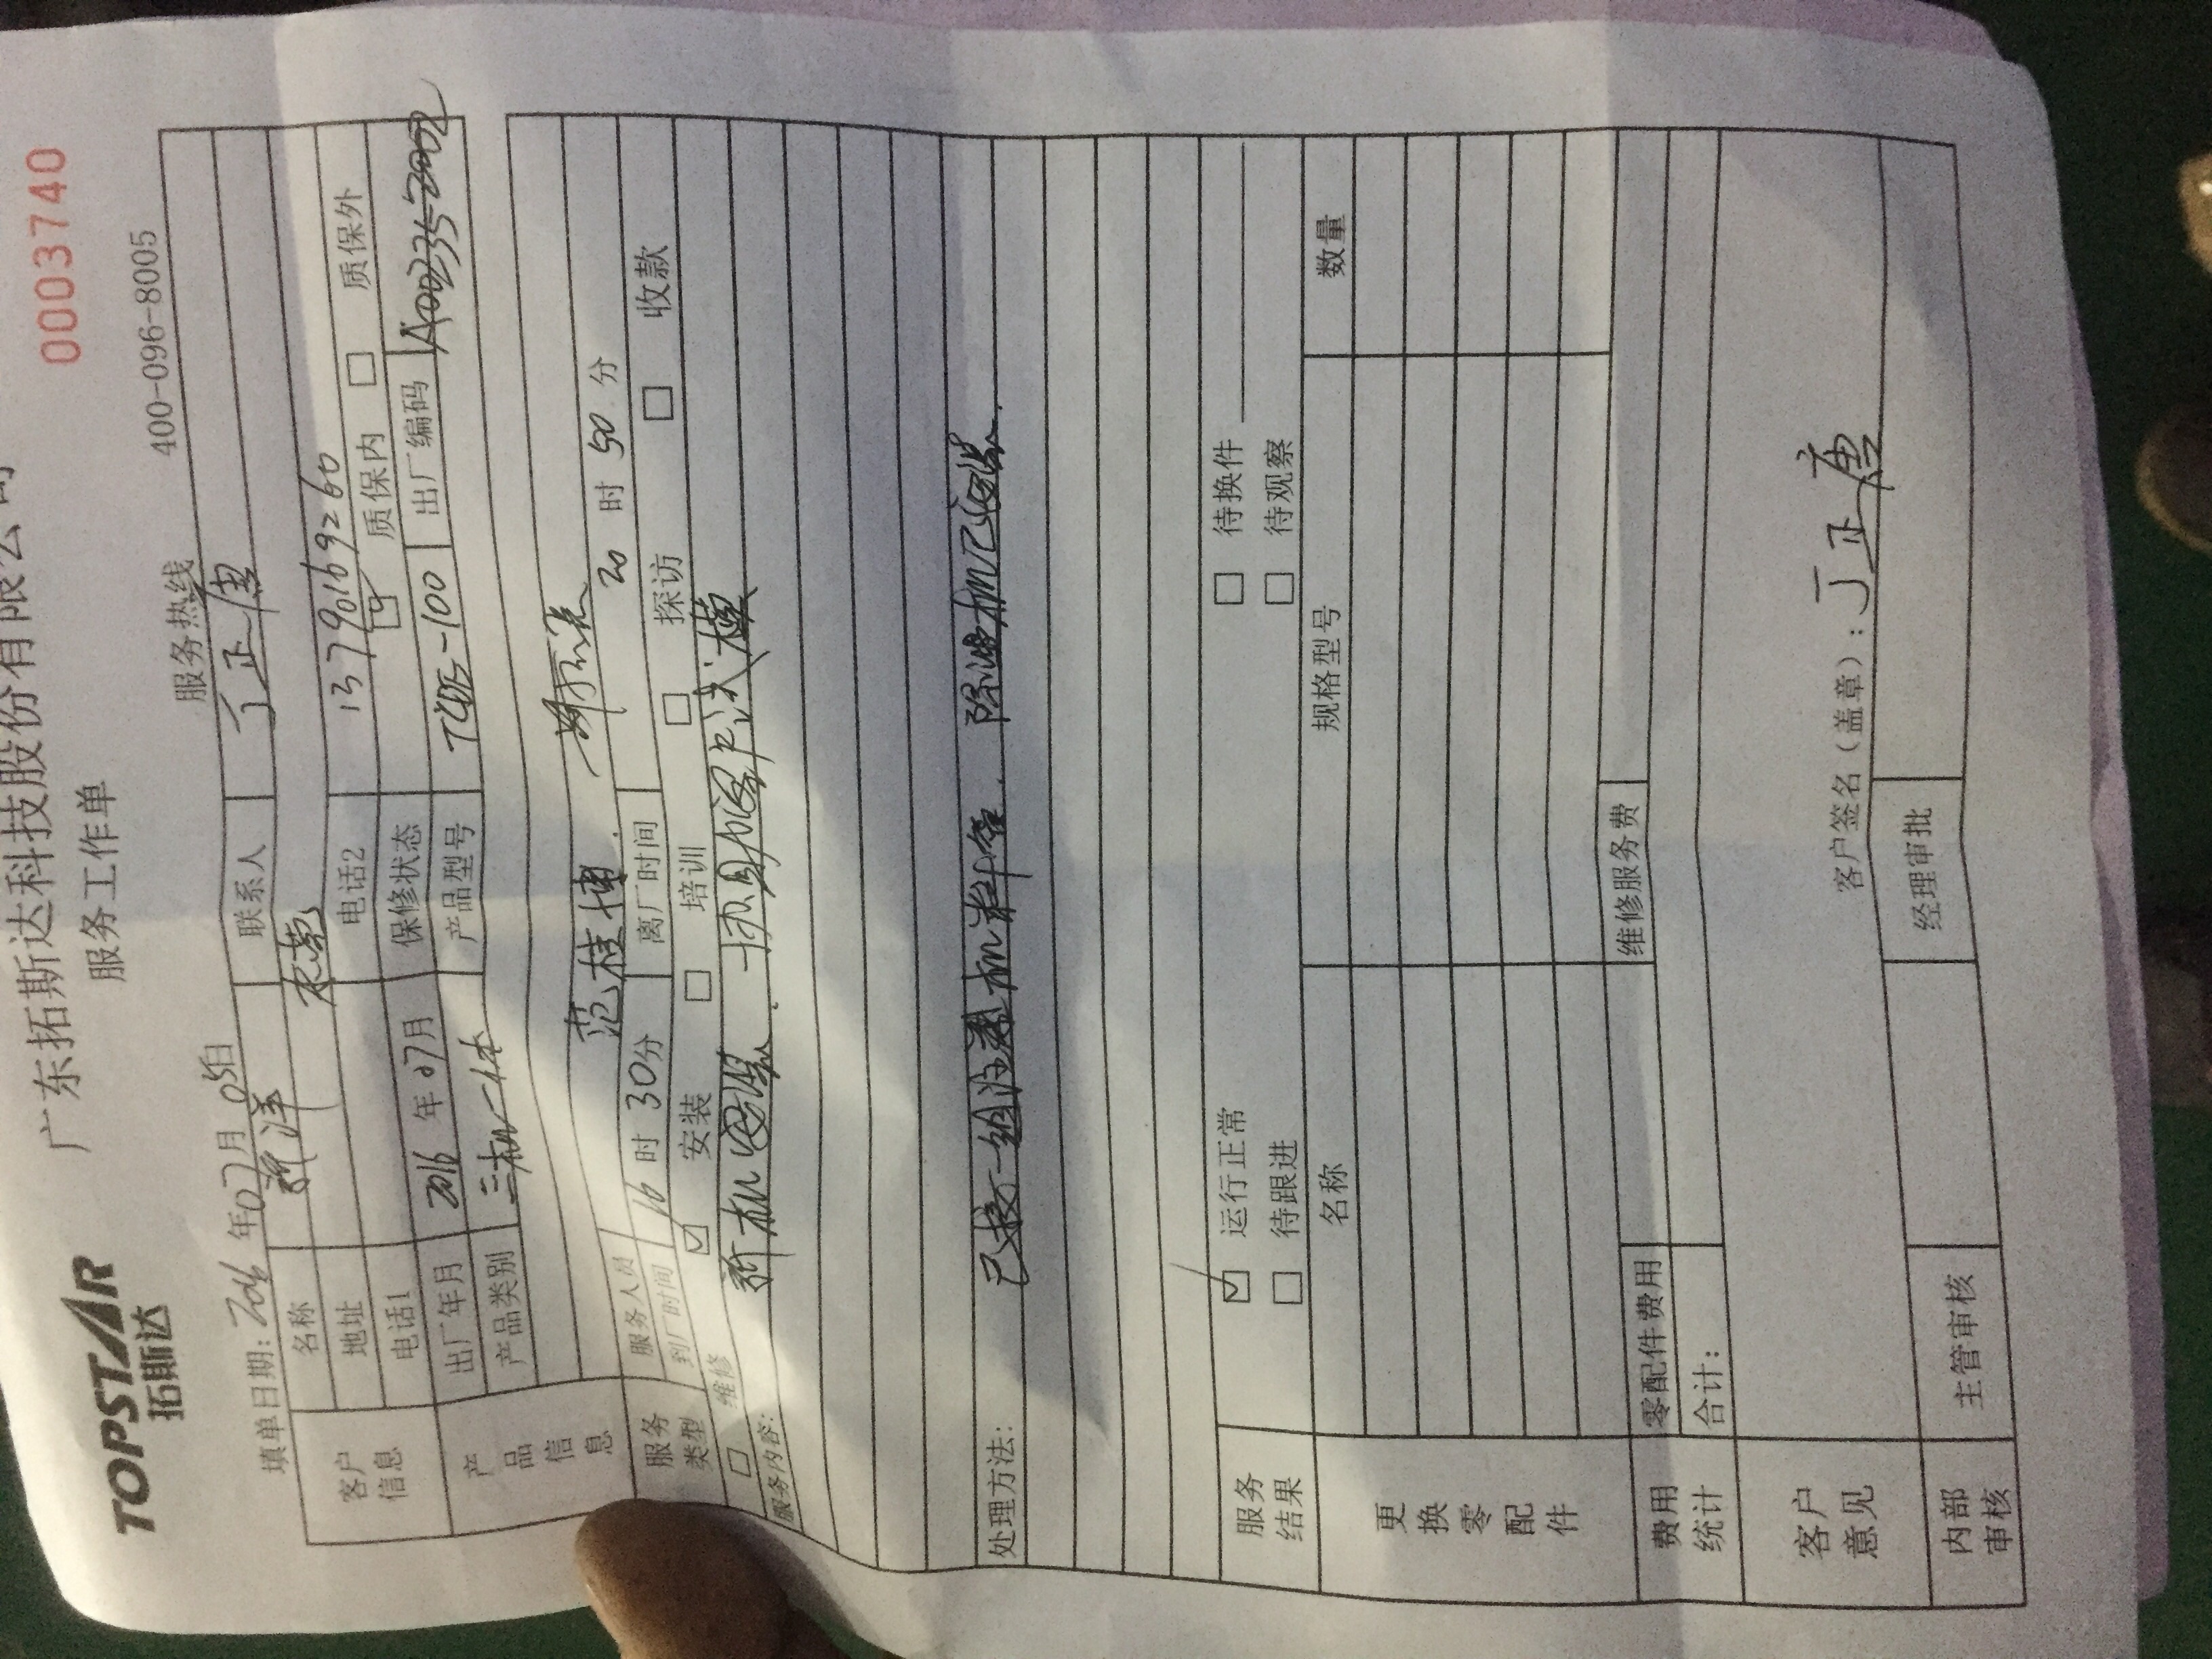 TOPSTAR
拓斯达
广东拓斯达科技股份有限公司
0003740
服务工作单
服务热线 400-096-8005
填单日期: 2016 年07月05日
客户信息
名称 联系人 丁正唐
地址
电话1 电话2 13790169260
产品信息
出厂年月 2016 年 07月 保修状态 ☑ 质保内 □ 质保外
产品类别 三机一体 产品型号 -100 出厂编码
服务人员 范桂博
到厂时间 16 时 30分 离厂时间 20 时 50 分
服务类型
□ 维修 ☑ 安装 □ 培训 □ 探访 □ 收款
服务内容: 新机 试模
处理方法: 已接一组注塑机料管. 除湿机已
服务结果
☑ 运行正常 □ 待换件
□ 待跟进 □ 待观察
更换零配件
名称 规格型号 数量
费用统计
零配件费用 维修服务费
合计:
客户意见
客户签名(盖章): 丁正唐
内部审核
主管审核 经理审批